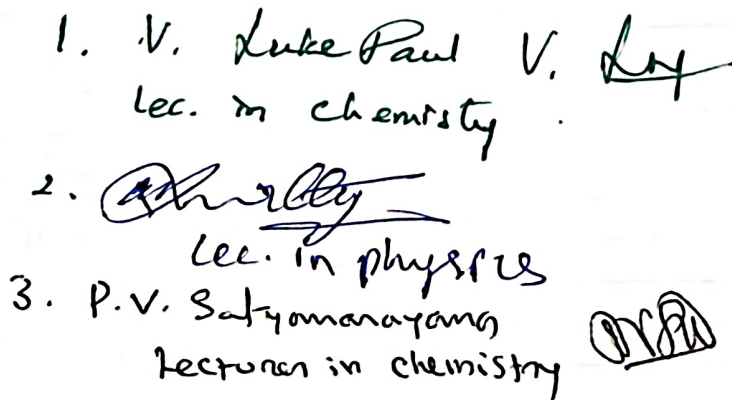 1. V. Luke Paul V.
Lec. in chemistry.
2.
Lec. in physics
3. P.V. Satyanarayana
Lecturer in chemistry